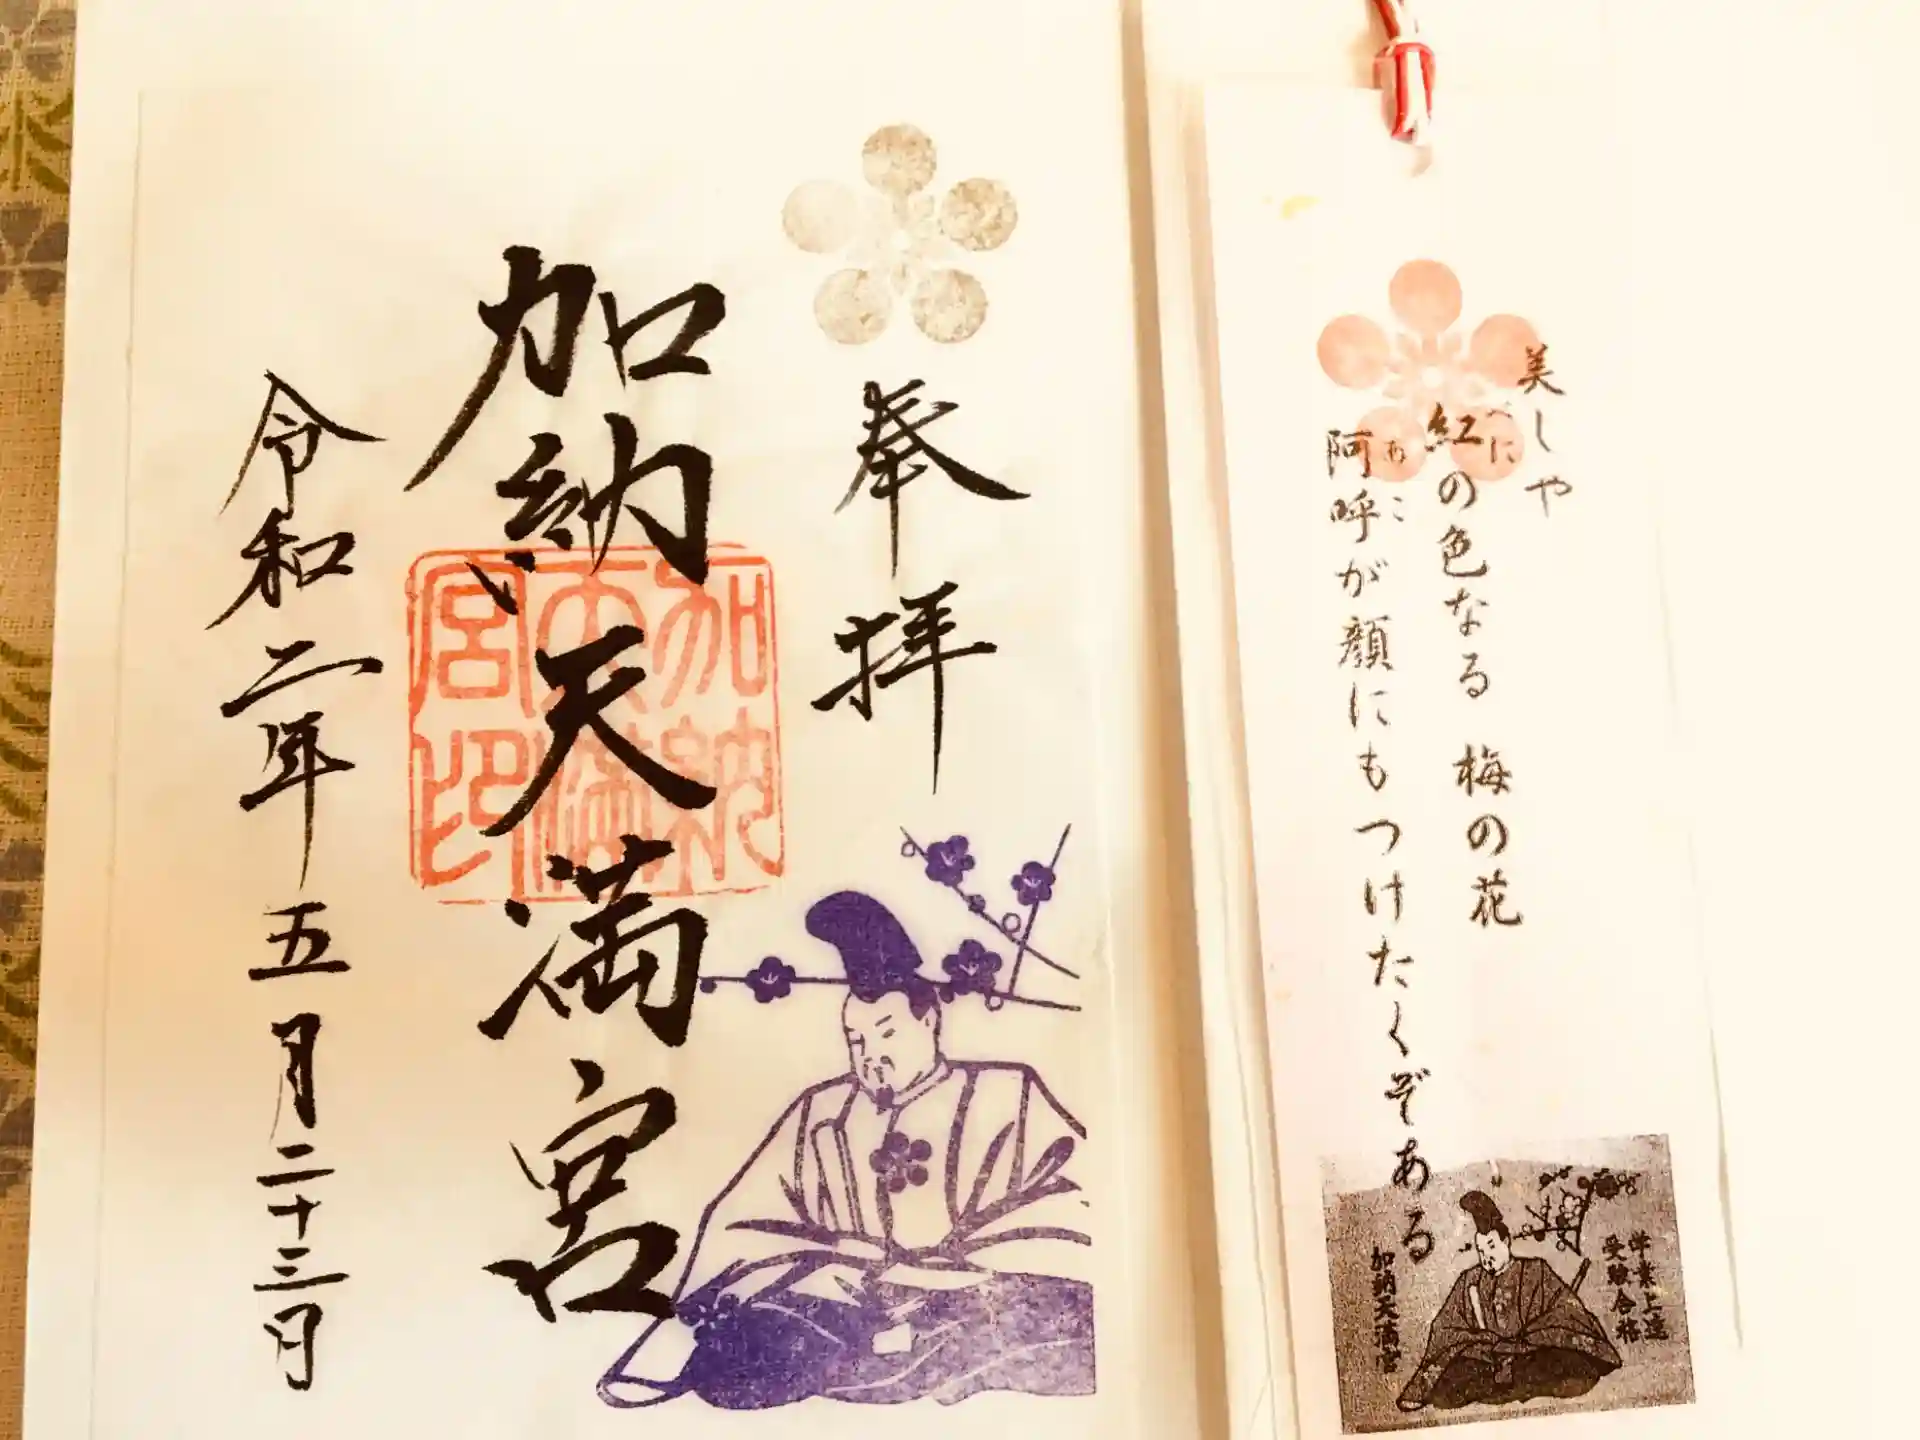 奉拝
加納天満宮
令和二年五月二十三日
加納
天満
宮印
美しや
紅の色なる 梅の花
べに
阿呼が顔にもつけたくぞある
あこ
学業上達
受験合格
加納天満宮